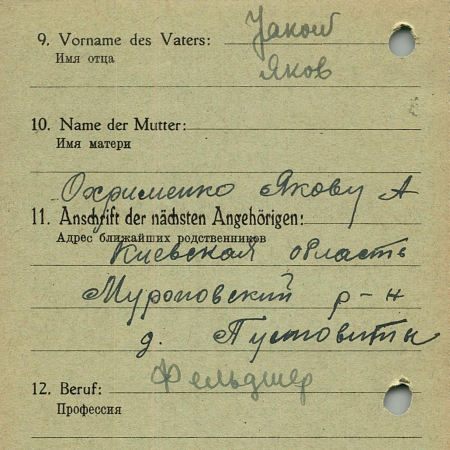 9. Vorname des Vaters: Jakow
Имя отца Яков
10. Name der Mutter:
Имя матери
Охрименко Якову А
11. Anschrift der nächsten Angehörigen:
Адрес ближайших родственников
Киевская область
Мироновский р-н
д. Пустовиты
12. Beruf: Фельдшер
Профессия